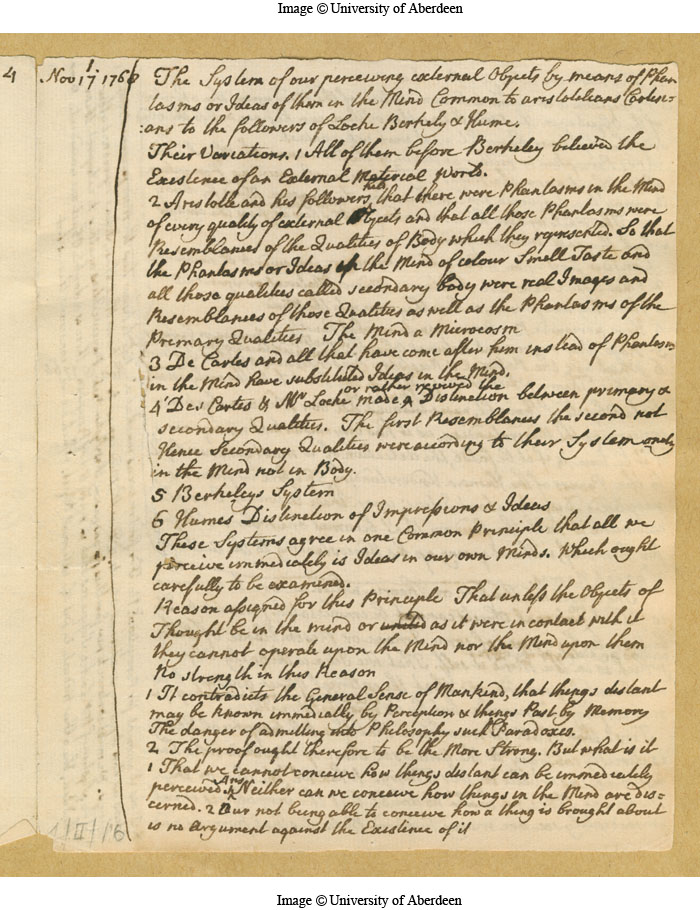 Image © University of Aberdeen
4 Nov 17 1768 The System of our perceiving external Objects by means of Phan
tasms or Ideas of them in the Mind Common to aristotelians Cartesi=
:ans to the followers of Locke Berkely & Hume.
Their Variations. 1 All of them before Berkeley believed the
Existence of an External Material World.
2 Aristotle and his followers held that there were Phantasms in the Mind
of every quality of external Objects and that all those Phantasms were
Resemblances of the Qualities of Body which they represented. So that
the Phantasms or Ideas in the Mind of colour Smell Taste and
all those qualities called secondary body were real Images and
Resemblances of those Qualities as well as the Phantasms of the
Primary Qualities The Mind a Microcosm
3 De Cartes and all that have come after him instead of Phantasms
in the Mind have substituted Ideas in the Mind.
or rather revived the
4 Des Cartes & Mr Locke made a Distinction between primary &
secondary Qualities. The first Resemblances the second not
Hence Secondary Qualities were according to their System only
in the Mind not in Body.
5 Berkeleys System
6 Humes Distinction of Impressions & Ideas
These Systems agree in one Common Principle that all we
perceive immediately is Ideas in our own Minds. Which ought
carefully to be examined.
Reason assigned for this Principle That unless the Objects of
Thought be in the mind or united as it were in contact with it
they cannot operate upon the Mind nor the Mind upon them
No strength in this Reason
1 It contradicts the General Sense of Mankind, that things distant
may be known immedially by Perception & things Past by Memory
The danger of admitting into Philosophy such Paradoxes.
2 The proof ought therefore to be the More Strong. But what is it
1 That we cannot conceive how things distant can be immediately
perceived. Ans 1 Neither can we conceive how things in the Mind are dis=
cerned. 2 Our not being able to conceive how a thing is brought about
is no Argument against the Existence of it
1/II/16
Image © University of Aberdeen